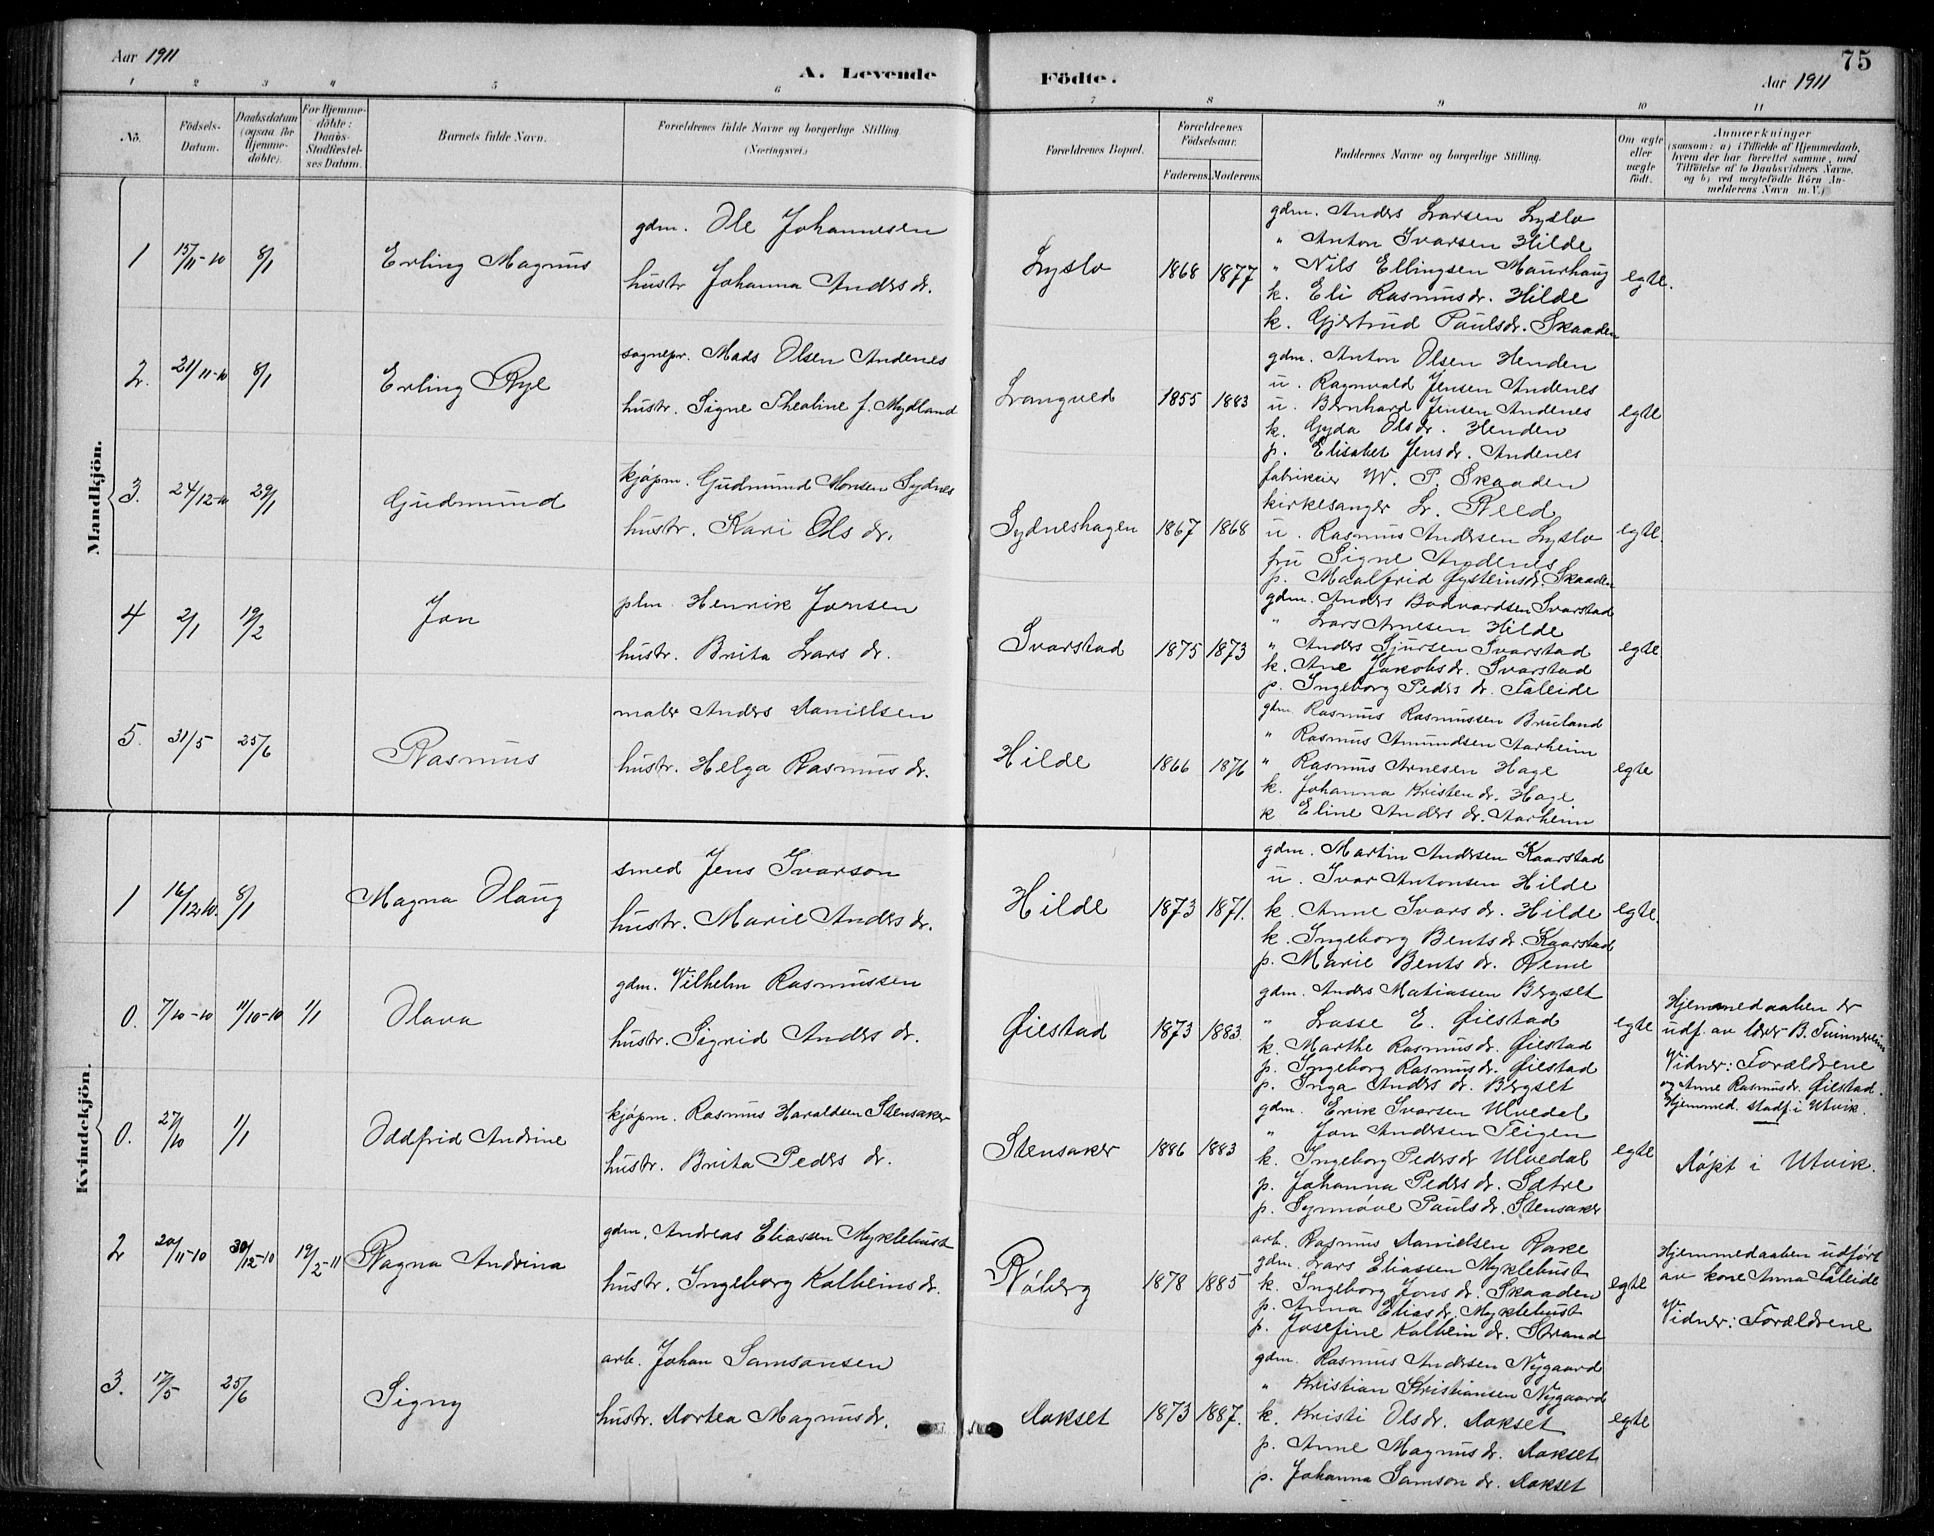 Aar 1911
A. Levende Födte.
75
Aar 1911
1 2 3 4 5 6 7 8 9 10 11
No. Födsels-Datum. Daabsdatum (ogsaa för Hjemme-döbte). For Hjemme-döbte: Daabs-Stadfæstel-ses Datum. Barnets fulde Navn. Forældrenes fulde Navne og borgerlige Stilling. (Næringsvei.) Forældrenes Bopæl. Forældrenes Födselsaar. Faderens. Moderens. Faddernes Navne og borgerlige Stilling. Om ægte eller uægte födt. Anmærkninger (saasom: a) i Tilfælde af Hjemmedaab, hvem der har forrettet samme, med Tilföielse af to Daabsvidners Navne, og b) ved uægtefödte Börn An-melderens Navn m. V.)
Mandkjön.
1 15/11-10 8/1 Erling Magnus
gdm. Ole Johannesen
hustr Johanna Anders dr.
Lyslo 1868 1877
gdm. Anders Larsen Lyslo
" Anton Ivarsen Hilde
" Nils Ellingsen Maurhaug
k. Eli Rasmus dr. Hilde
k. Gjertrud Paulsdr. Skaaden
egte.
2. 21/11-10 8/1 Erling Rye
sognepr. Mads Olsen Andenes
hustr. Signe Theoline f. Mydland
Langved 1855 1883
gdm. Anton Olsen Henden
u. Ragnvald Jensen Andenes
u. Bernhard Jensen Andenes
k. Gyda Ols dr. Henden
p. Elisabet Jens dr. Andenes
egte
3. 24/12-10 29/1 Gudmund
kjøpm. Gudmund Monsen Sydnes
hustr. Kari Ols dr.
Sydneshagen 1867 1868
fabrikeier W. P. Skaaden
kirkesanger L. Reed
u. Rasmus Andersen Lyslo
fru Signe Andenes
p. Maalfrid Øysteinsdr. Skaaden
egte.
4 2/1 19/2 Jon
plm. Henrik Jonsen
hustr. Brita Lars dr.
Svarstad 1875 1873
gdm. Anders Bodvardsen Svarstad
" Lars Arnesen Hilde
" Anders Sjursen Svarstad
k. Ane Jakobs dr. Svarstad
p. Ingeborg Peders dr. Faleide
egte
5. 31/5 25/6 Rasmus
maler Anders Danielsen
hustr. Helga Rasmus dr.
Hilde 1866 1876
gdm. Rasmus Rasmussen Bruland
" Rasmus Amundsen Aarheim
" Rasmus Arnesen Hage
k. Johanna Kristen dr. Hage
k Eline Anders dr. Aarheim
egte
Kvindekjön.
1 16/12 10. 8/1 Magna Olaug
smed Jens Ivarson
hustr. Marie Anders dr.
Hilde 1873 1871.
gdm. Martin Andersen Kaarstad
u. Ivar Antonsen Hilde
k. Anne Ivars dr. Hilde
k. Ingeborg Bents dr. Kaarstad
p. Marie Bents dr.
egte.
0. 7/10-10 11/10-10 1/1 Olava
gdm. Vilhelm Rasmussen
hustr. Sigrid Anders dr.
Øiestad 1873 1883.
gdm. Anders Matiassen Bergset
" Lasse E. Øiestad
k. Marthe Rasmus dr. Øiestad
p. Ingeborg Rasmus dr. Øiestad
p. Inga Anders dr. Bergset
egte
Hjemmedaaben er
udf. av lærer B. Tvinnereim
Vidner: Forældrene
og Anne Rasmus dr. Øiestad.
Hjemmed. stadf. i Utvik.
0. 27/10 1/1 Oddfrid Andrine
kjøpm. Rasmus Haraldsen Stensaker
hustr. Brita Peders dr.
Stensaker 1886 1883
gdm. Erik Ivarsen Ulvedal
" Jon Andersen Teigen
k. Ingeborg Peders dr Ulvedal
p. Johanna Peders dr. Sætre
p. Synnøve Pauls dr. Stensaker
egte
Døpt i Utvik.
2 20/11-10 30/12-10 19/2-11 Ragna Andrina
gdm. Andreas Eliassen Myklebust
hustr. Ingeborg Kolbeins dr.
Røberg 1878 1885
arb. Rasmus Danielsen Rake
gdm. Lars Eliassen Myklebust
k. Ingeborg Jons dr. Skaaden
p. Anna Elias dr. Myklebust
p. Josefine Kolbein dr. Strand
egte
Hjemmedaaben udført
av kone Anna Faleide
Vidner: Forældrene
3. 17/5 25/6 Signy
arb. Johan Samsonsen
hustr. Dortea Magnus dr.
Dokset 1873 1887.
gdm. Rasmus Andersen Nygaard
" Kristian Kristiansen Nygaard
k. Kristi Ols dr. Dokset
p. Anne Magnus dr. Dokset
p. Johanna Samson dr. Dokset
egte